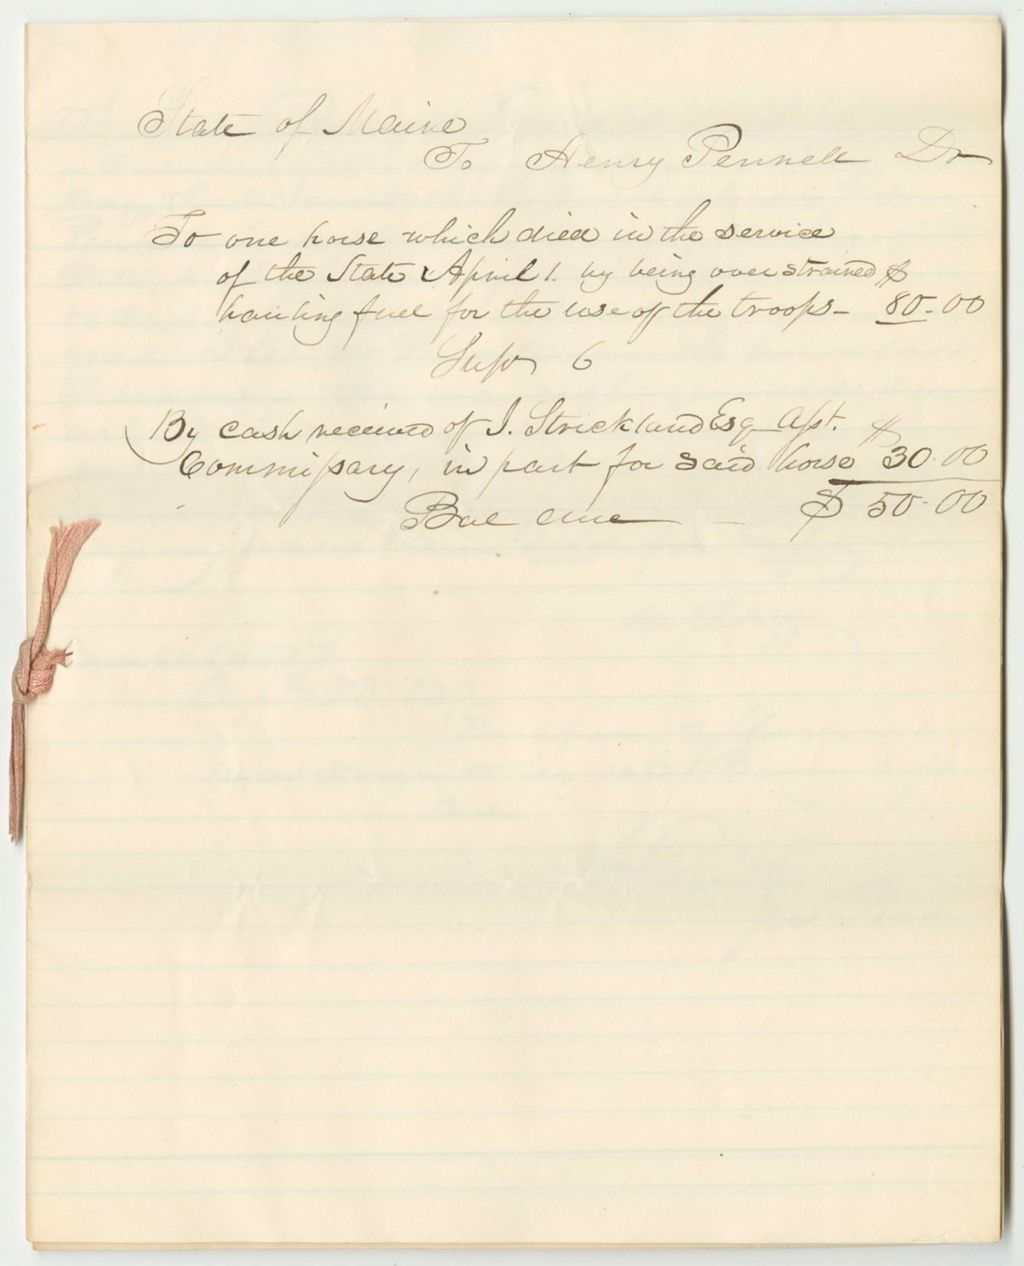 State of Maine
To Henry Pennell Dr
To one horse which died in the service
of the State April 1. by being over strained $
hauling fuel for the use of the troops - 80.00
6
By cash received of I. Strickland Esq Asst.
Commissary, in part for said horse $ 30.00
Bal due - $ 50.00